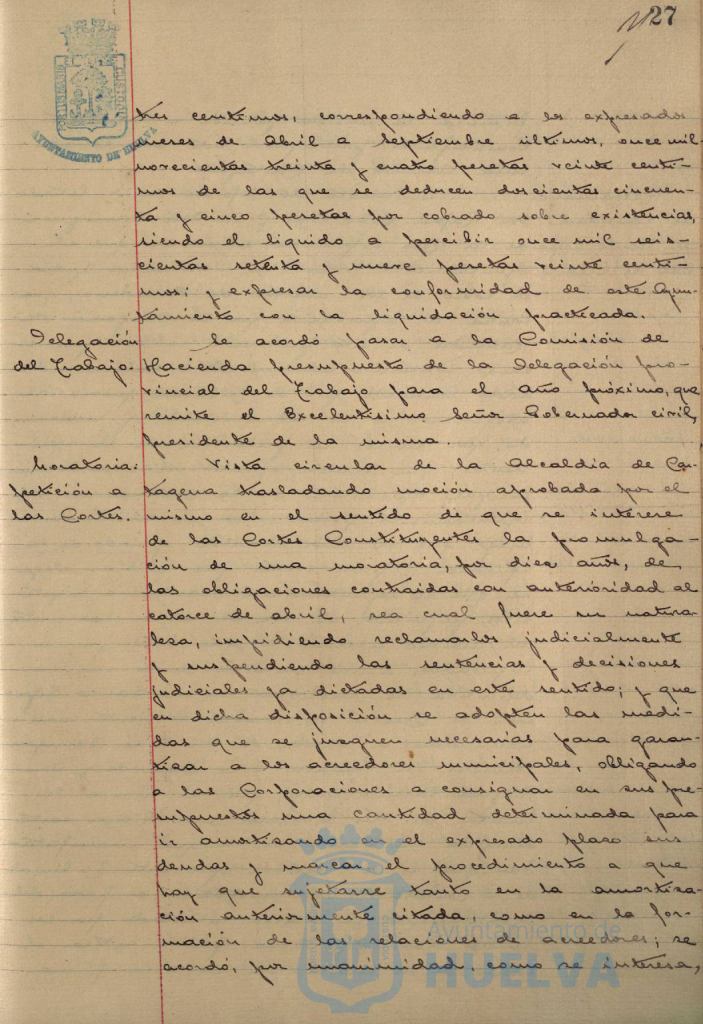 27
AYUNTAMIENTO DE HUELVA
tres centimos, correspondiendo a los expresados
meses de Abril a Septiembre últimos, once mil
novecientas treinta y cuatro pesetas veinte centi-
mos de las que se deducen doscientas cincuen-
ta y cinco pesetas por cobrado sobre existencias,
siendo el liquido a percibir once mil seis-
cientas setenta y nueve pesetas veinte centi-
mos; y expresar la conformidad de este Ayun-
tamiento con la liquidación practicada.
Delegación
del Trabajo.
Se acordó pasar a la Comisión de
Hacienda presupuesto de la Delegación pro-
vincial del Trabajo para el año próximo, que
remite el Excelentisimo Señor Gobernador civil,
presidente de la misma.
Moratoria:
petición a
las Cortes.
Vista circular de la Alcaldia de Car-
tagena trasladando moción aprobada por el
mismo en el sentido de que se interese
de las Cortes Constituyentes la promulga-
ción de una moratoria, por diez años, de
las obligaciones contraidas con anterioridad al
catorce de abril, sea cual fuere su natura-
leza, impidiendo reclamarlos judicialmente
y suspendiendo las sentencias y decisiones
judiciales ya dictadas en este sentido; y que
en dicha disposición se adopten las medi-
das que se juzguen necesarias para garan-
tizar a los acreedores municipales, obligando
a las Corporaciones a consignar en sus pre-
supuestos una cantidad determinada para
ir amortizando en el expresado plazo sus
deudas y marcar el procedimiento a que
hay que sujetarse tanto en la amortiza-
ción anteriormente citada, como en la for-
mación de las relaciones de acreedores; se
acordó, por unanimidad, como se interesa,
Ayuntamiento de
HUELVA